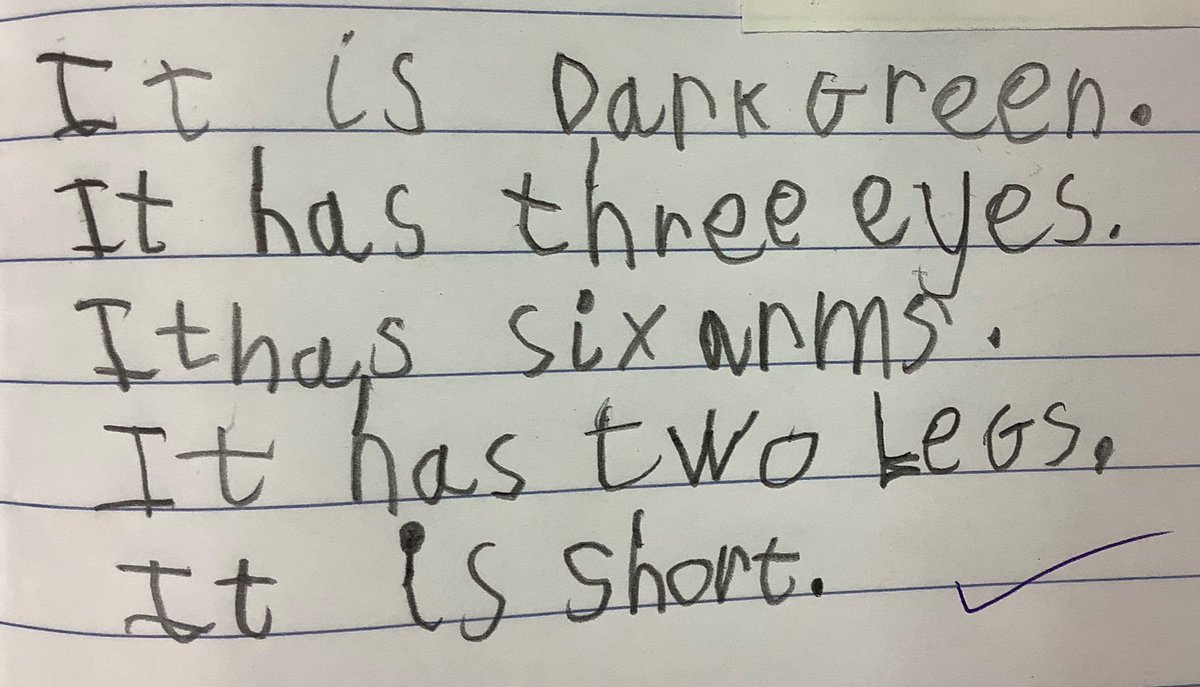 It is Dark Green.
It has three eyes.
It has six arms.
It has two Legs.
It is short.